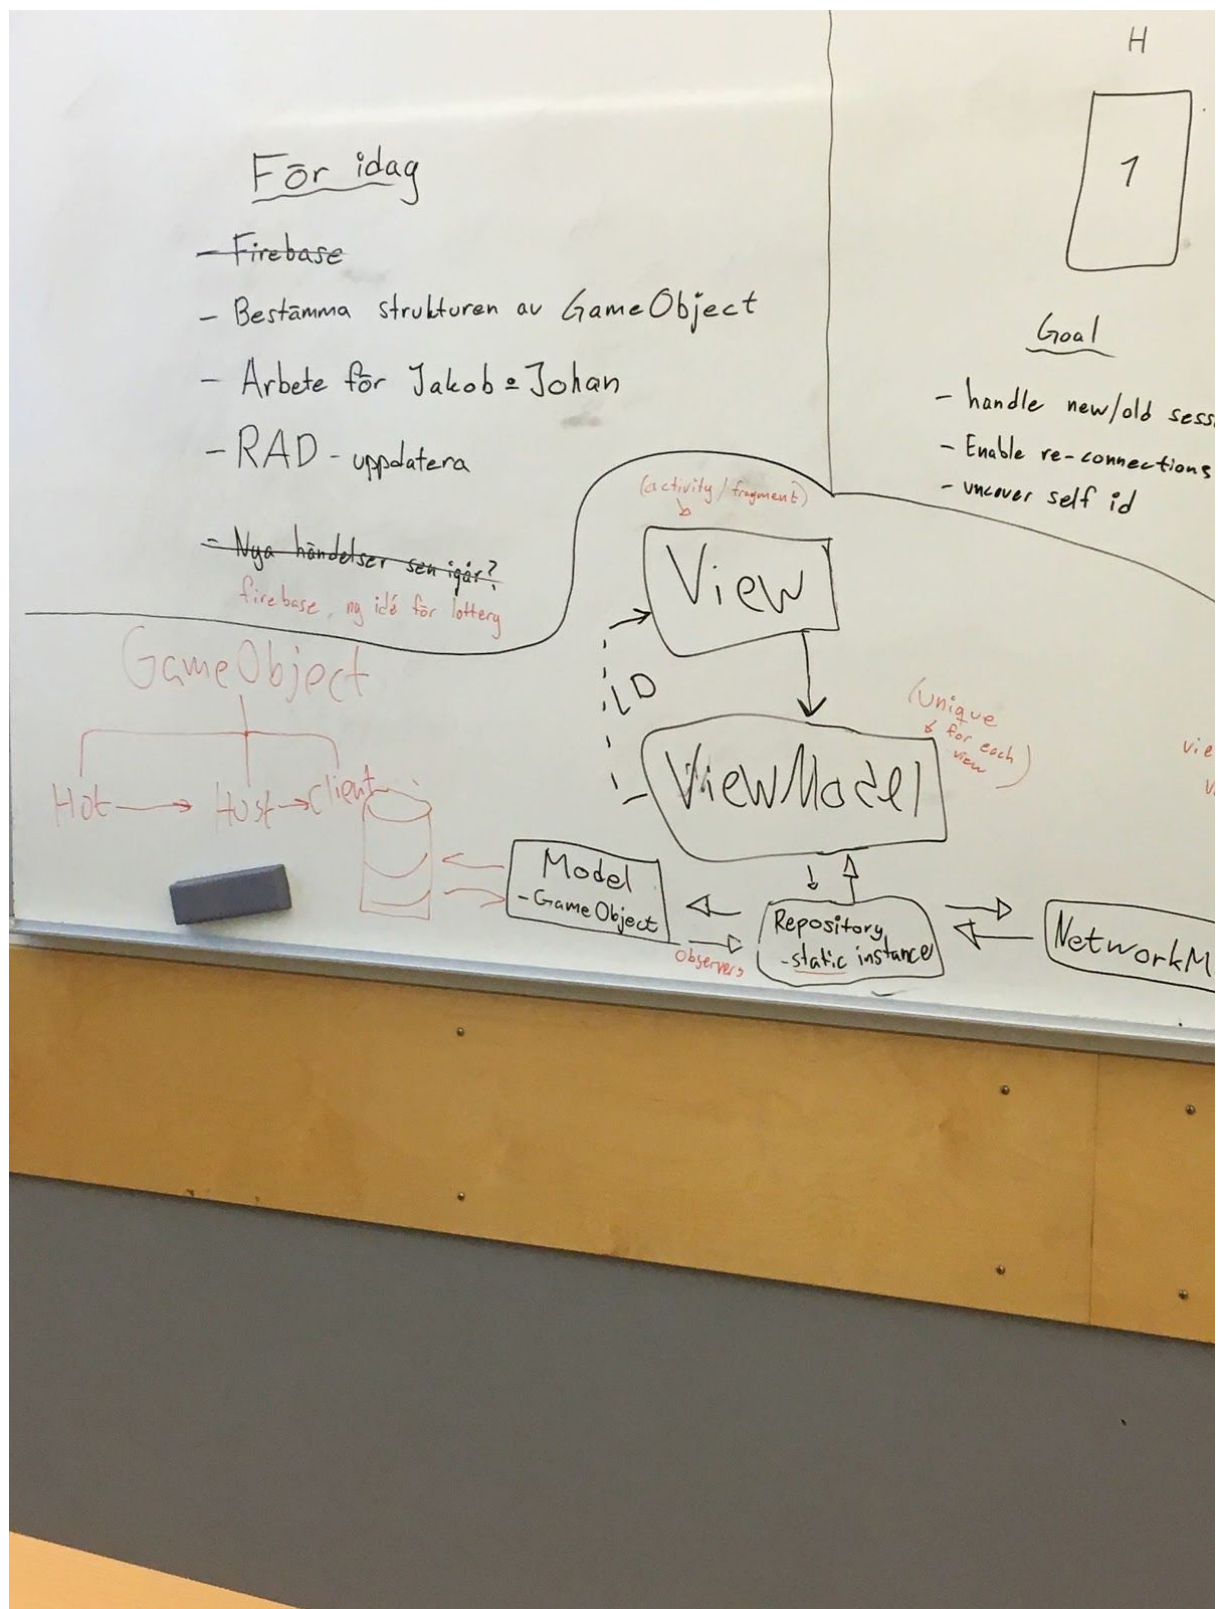 För idag
- Firebase
- Bestämma strukturen av GameObject
- Arbete för Jakob & Johan
- RAD - uppdatera
- Nya händelser sen igår?
firebase, ny idé för lottery
H
1
Goal
- handle new/old sess
- Enable re-connections
- uncover self id
(activity / fragment)
View
LD
(Unique
for each
view)
ViewModel
GameObject
Hot Host Client
Model
- GameObject
Observers
Repository
- static instance
NetworkM
vie